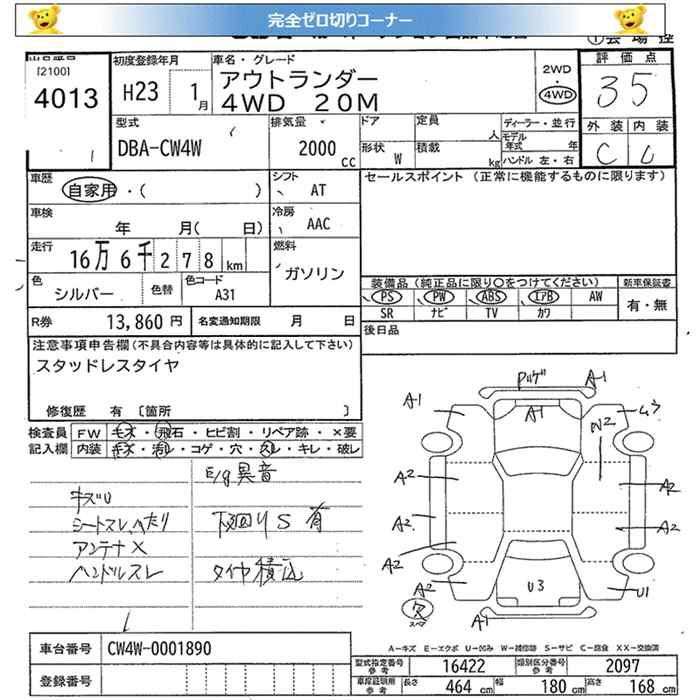 完全ゼロ切りコーナー
[2100]
4013
初度登録年月
H23 1月
車名・グレード
アウトランダー
4WD 20M
2WD
4WD
評価点
35
外装 内装
C C
型式
DBA-CW4W
排気量
2000 cc
ドア
定員
人
形状
W
積載
kg
ディーラー・並行
モデル年式 年
ハンドル 左・右
車歴
自家用・( )
シフト
AT
セールスポイント (正常に機能するものに限ります)
車検
年 月( 日)
冷房
AAC
走行
16万6千278km
燃料
ガソリン
色
シルバー
色替
色コード
A31
装備品 (純正品に限り○をつけてください)
新車保証書
PS PW ABS エアB AW
有・無
SR ナビ TV カワ
R券
13,860 円
名変通知期限 月 日
後日品
注意事項申告欄 (不具合内容等は具体的に記入して下さい)
スタッドレスタイヤ
修復歴 有 [箇所 ]
検査員 FW キズ・飛石・ヒビ割・リペア跡・×要
記入欄 内装 キズ・汚レ・コゲ・穴・スレ・キレ・破レ
E/g異音
キズU
シートスレ、へたり
下回りS 有
アンテナX
ハンドルスレ
タイヤ積込
A-1
A-1
A-1
A2
A2
A2
A2
A2
A2
A2
U3
U1
A-1
A-キズ E-エクボ U-凹み W-補修跡 S-サビ C-腐食 XX-交換済
車台番号
CW4W-0001890
登録番号
型式指定番号 参考
16422
類別区分番号 参考
2097
車庫証明用 参考
長さ 464 cm
幅 180 cm
高さ 168 cm